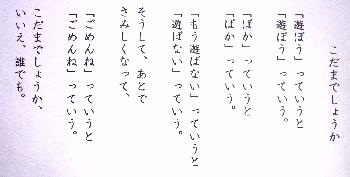 こだまでしょうか
「遊ぼう」っていうと
「遊ぼう」っていう。
「ばか」っていうと
「ばか」っていう。
「もう遊ばない」っていうと
「遊ばない」っていう。
そうして、あとで
さみしくなって、
「ごめんね」っていうと
「ごめんね」っていう。
こだまでしょうか、
いいえ、誰でも。